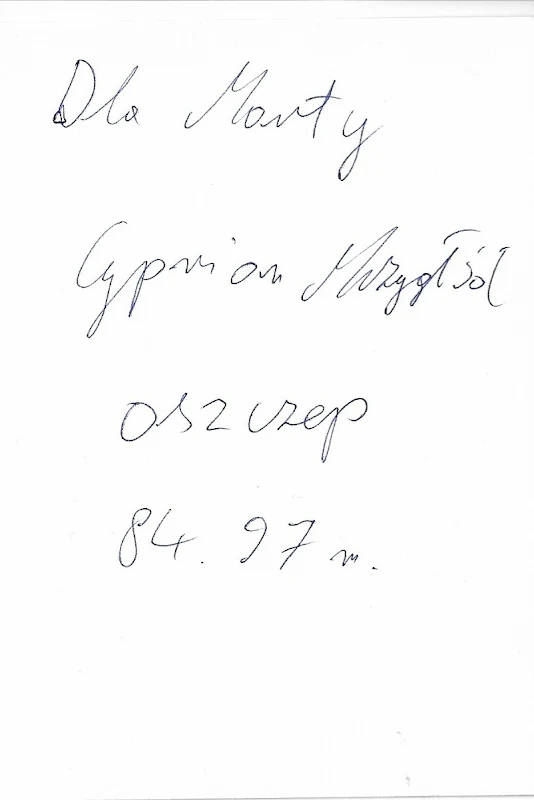 Dla Marty
Cyprian Mrzygłód
oszczep
84.97 m.